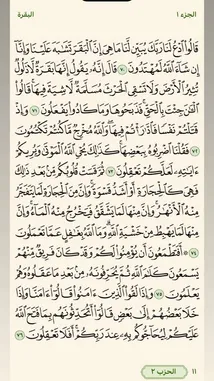 الجزء ١
البقرة
قَالُوا۟ ٱدْعُ لَنَا رَبَّكَ يُبَيِّن لَّنَا مَا هِىَ إِنَّ ٱلْبَقَرَ تَشَـٰبَهَ عَلَيْنَا وَإِنَّآ
إِن شَآءَ ٱللَّهُ لَمُهْتَدُونَ ٧٠ قَالَ إِنَّهُۥ يَقُولُ إِنَّهَا بَقَرَةٌ لَّا ذَلُولٌ
تُثِيرُ ٱلْأَرْضَ وَلَا تَسْقِى ٱلْحَرْثَ مُسَلَّمَةٌ لَّا شِيَةَ فِيهَا ۚ قَالُوا۟
ٱلْـَٔـٰنَ جِئْتَ بِٱلْحَقِّ ۚ فَذَبَحُوهَا وَمَا كَادُوا۟ يَفْعَلُونَ ٧١ وَإِذْ
قَتَلْتُمْ نَفْسًا فَٱدَّٰرَْٰٔتُمْ فِيهَا ۖ وَٱللَّهُ مُخْرِجٌ مَّا كُنتُمْ تَكْتُمُونَ
٧٢ فَقُلْنَا ٱضْرِبُوهُ بِبَعْضِهَا ۚ كَذَٰلِكَ يُحْىِ ٱللَّهُ ٱلْمَوْتَىٰ وَيُرِيكُمْ
ءَايَـٰتِهِۦ لَعَلَّكُمْ تَعْقِلُونَ ٧٣ ثُمَّ قَسَتْ قُلُوبُكُم مِّنۢ بَعْدِ ذَٰلِكَ
فَهِىَ كَٱلْحِجَارَةِ أَوْ أَشَدُّ قَسْوَةً ۚ وَإِنَّ مِنَ ٱلْحِجَارَةِ لَمَا يَتَفَجَّرُ
مِنْهُ ٱلْأَنْهَـٰرُ ۚ وَإِنَّ مِنْهَا لَمَا يَشَّقَّقُ فَيَخْرُجُ مِنْهُ ٱلْمَآءُ ۚ وَإِنَّ
مِنْهَا لَمَا يَهْبِطُ مِنْ خَشْيَةِ ٱللَّهِ ۗ وَمَا ٱللَّهُ بِغَـٰفِلٍ عَمَّا تَعْمَلُونَ
٧٤ ۞ أَفَتَطْمَعُونَ أَن يُؤْمِنُوا۟ لَكُمْ وَقَدْ كَانَ فَرِيقٌ مِّنْهُمْ
يَسْمَعُونَ كَلَـٰمَ ٱللَّهِ ثُمَّ يُحَرِّفُونَهُۥ مِنۢ بَعْدِ مَا عَقَلُوهُ وَهُمْ
يَعْلَمُونَ ٧٥ وَإِذَا لَقُوا۟ ٱلَّذِينَ ءَامَنُوا۟ قَالُوٓا۟ ءَامَنَّا وَإِذَا خَلَا
بَعْضُهُمْ إِلَىٰ بَعْضٍ قَالُوٓا۟ أَتُحَدِّثُونَهُم بِمَا فَتَحَ ٱللَّهُ
عَلَيْكُمْ لِيُحَآجُّوكُم بِهِۦ عِندَ رَبِّكُمْ ۚ أَفَلَا تَعْقِلُونَ ٧٦
١١ الحزب ٢